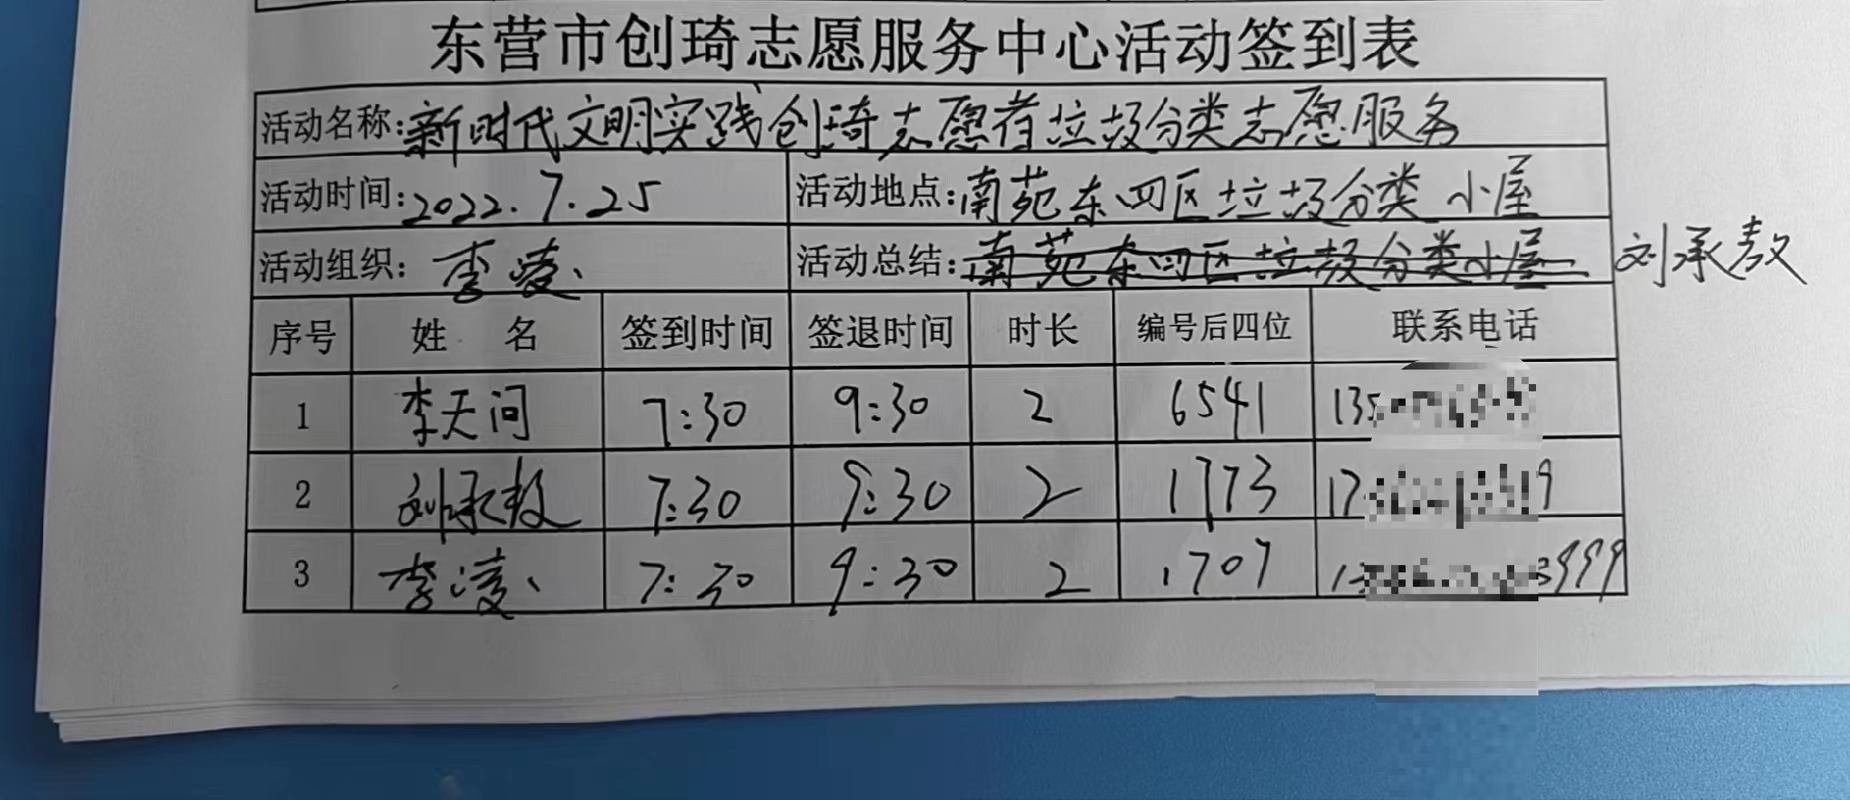 东营市创琦志愿服务中心活动签到表
活动名称:新时代文明实践创琦志愿者垃圾分类志愿服务
活动时间:2022.7.25 活动地点:南苑东四区垃圾分类小屋
活动组织:李凌 活动总结:南苑东四区垃圾分类小屋 刘承敖
序号 姓 名 签到时间 签退时间 时长 编号后四位 联系电话
1 李天问 7:30 9:30 2 6541 135
2 刘承敖 7:30 9:30 2 1773 17 9
3 李凌 7:30 9:30 2 1707 1 999